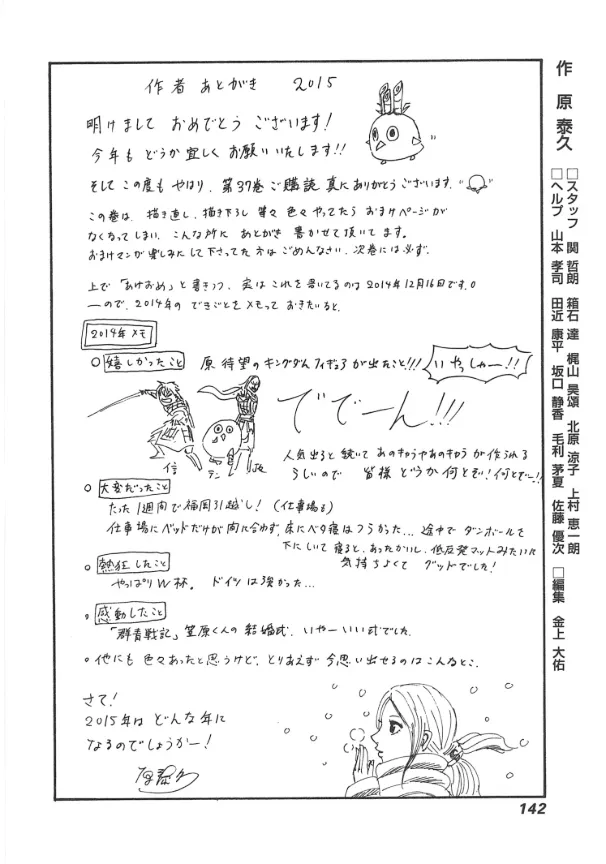 作者 あとがき 2015
明けまして おめでとう ございます!
今年も どうか 宜しく お願い いたします!!
そして この度も やはり、第37巻 ご購読 真に ありがとう ございます。
この巻は、描き直し、描き下ろし 等々 色々 やってたら おまけページが
なくなってしまい、こんな所に あとがき 書かせて 頂いてます。
おまけマンが 楽しみにして下さってた方は ごめんなさい、次巻には必ず。
上で「あけおめ」と書きつつ、実は これを書いてるのは 2014年12月16日です。
ーので、2014年の できごとを メモって おきたいと。
2014年 メモ
○ 嬉しかったこと 原 待望の キングダムフィギュアが 出たこと!!!
いやっしゃー!!
ででーん!!!
信 テン
人気出ると 続いて あのキャラやあのキャラが 作られる
らしいので 皆様 どうか何とぞ! 何とぞー!!
○ 大変だったこと
たった1週間で 福岡引越し! (仕事場も)
仕事場に ベッドだけが 間に合わず、床にベタ寝は つらかった… 途中で ダンボールを
下にしいて 寝ると、あったかいし、低反発マットみたいに
気持ちよくて グッドでした!
○ 熱狂したこと
やっぱりW杯。 ドイツは 強かった…
○ 感動したこと
「群青戦記」笠原くんの 結婚式、いやー いい式でした。
○ 他にも 色々あったと思うけど、とりあえず 今思い出せるのは こんなとこ。
さて!
2015年は どんな年に
なるのでしょうかー!
原泰久
作 原 泰久
□スタッフ 関 哲朗 箱石 達 梶山 昊頌 北原 涼子 上村 恵一朗
□ヘルプ 山本 孝司 田近 康平 坂口 静香 毛利 茅夏 佐藤 優次 □編集 金上 大佑
142